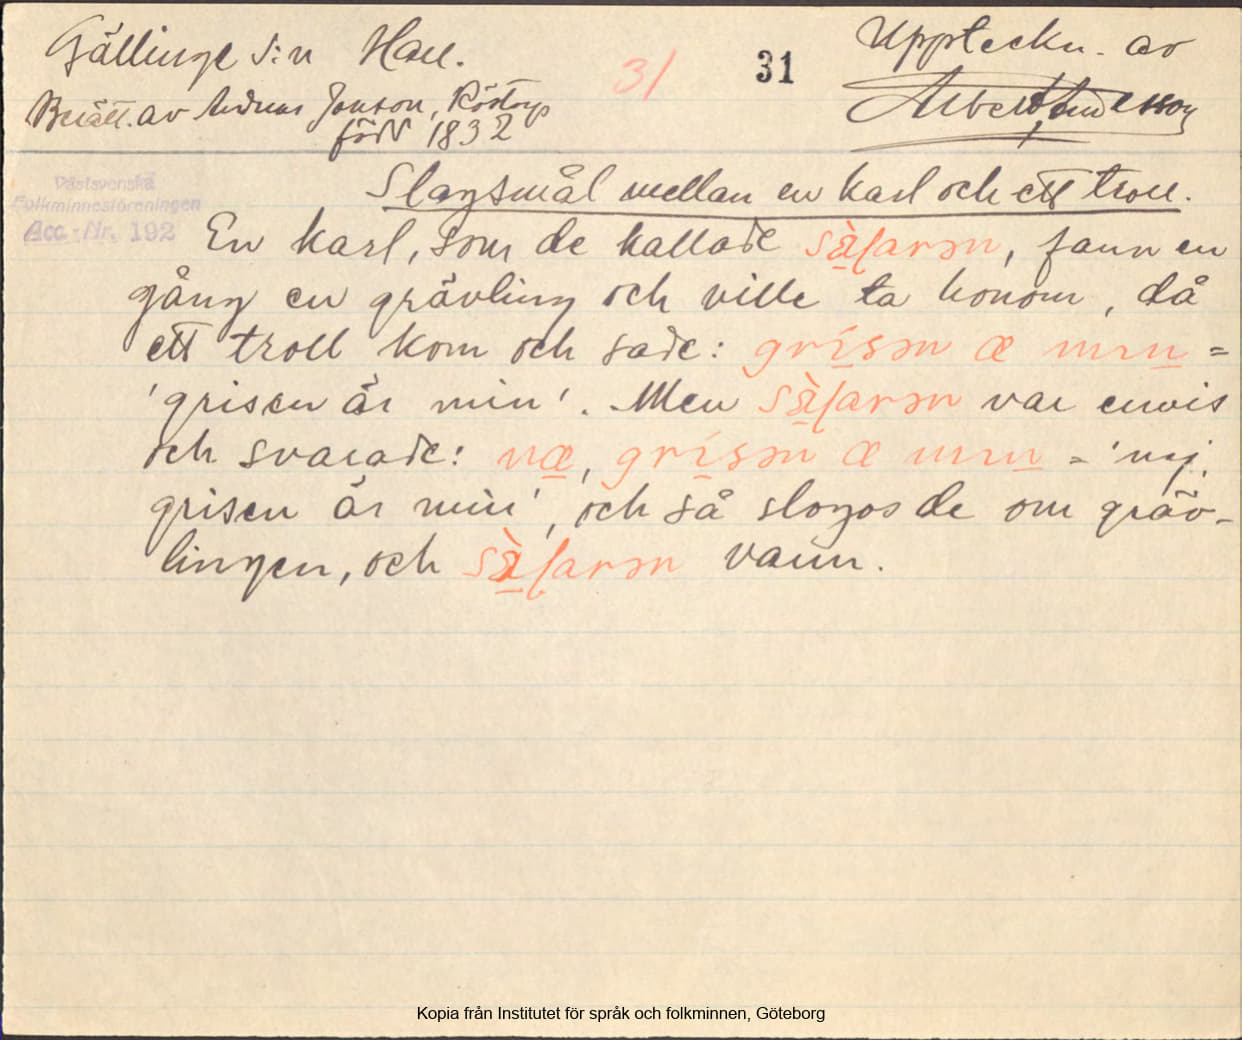 Gällinge s:n Hall.
31
31
Uppteckn. av
Berätt. av Andreas Jonson, Röstorp
född 1832
Albert Andersson
Västsvenska
Folkminnesföreningen
Acc.-Nr. 192
Slagsmål mellan en karl och ett troll.
En karl, som de kallade fann en
gång en grävling och ville ta honom, då
ett troll kom och sade: grísən æ mɪn =
'grisen är min'. Men var envis
och svarade: næ, grísən æ mɪn = 'nej,
grisen är min', och så slogos de om gräv-
lingen, och vann.
Kopia från Institutet för språk och folkminnen, Göteborg